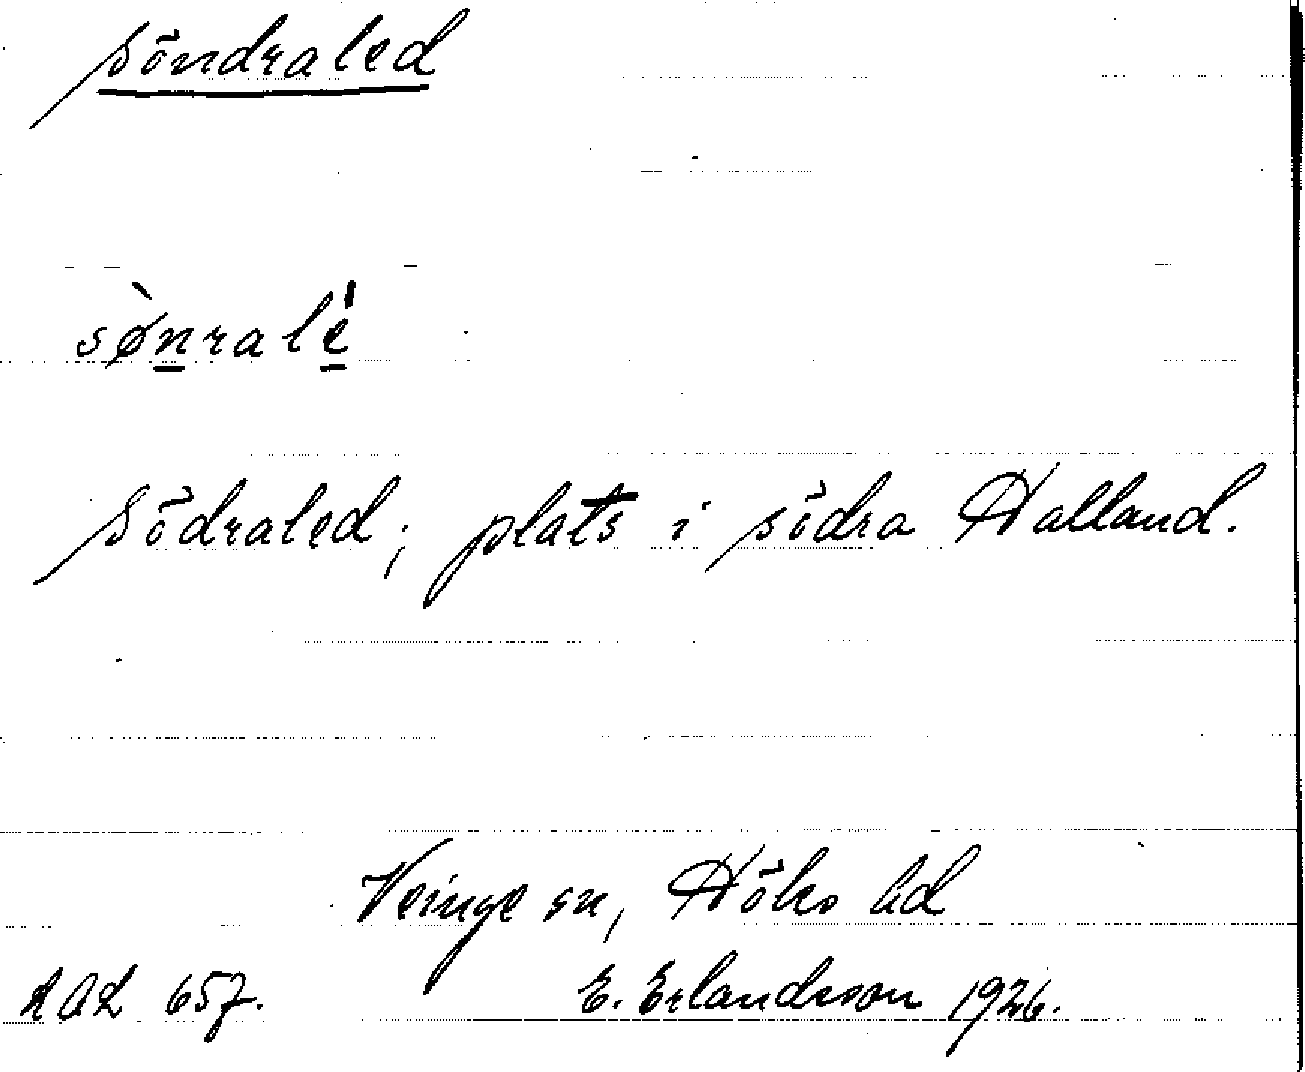 söndraled
sø̀nralé
södraled; plats i södra Halland.
Veinge sn, Höks hd
657. E. Erlandsson 1926.